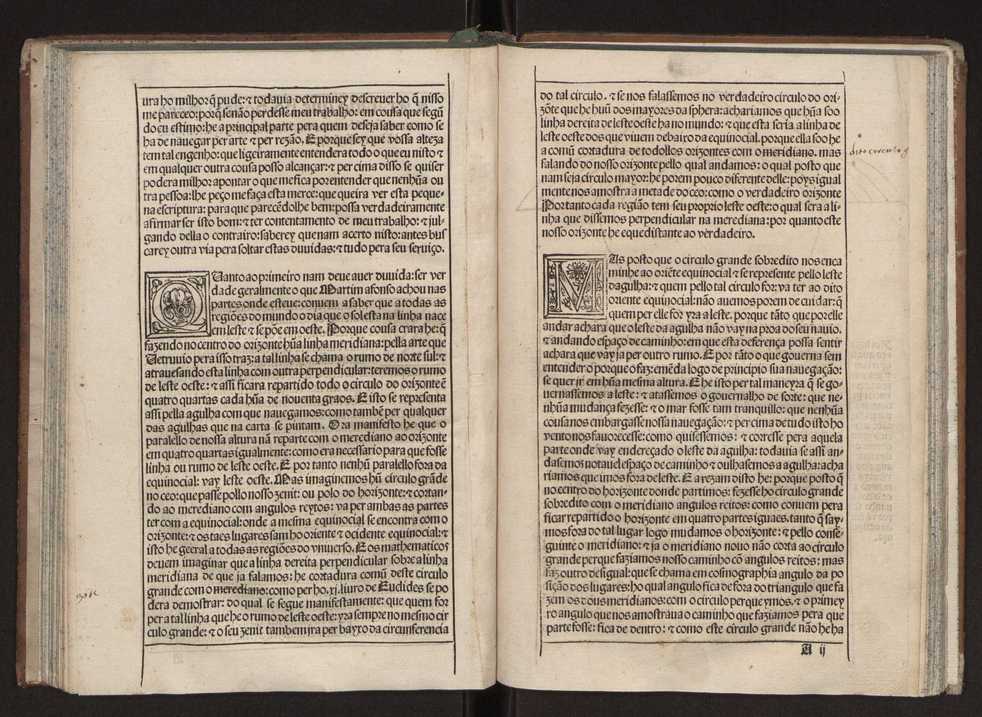 ura ho milhor q̃ pude: ⁊ todauia determiney descreuer ho q̃ nisso
me pareceo: porq̃ senão perdesse meu trabalho: em cousa que segũ
do eu estimo: he a principal parte pera quem deseja saber como se
ha de nauegar per arte ⁊ per rezão. E porque sey que vossa alteza
tem tal engenho: que ligeiramente entendera todo o que eu nisto ⁊
em qualquer outra cousa posso alcançar: ⁊ per cima disso se quiser
podera milhor apontar o que me fica por entender que nenhũa ou
tra pessoa: lhe peço me faça esta merce: que queira ver esta peque-
na escriptura: para que parecẽdolhe bem: possa verdadeiramente
afirmar ser isto bom: ⁊ ter contentamento de meu trabalho: ⁊ jul-
gando della o contrairo: saberey que nam acerto nisto: antes bus
carey outra via pera soltar estas duuidas: ⁊ tudo pera seu seruiço.
QUanto ao primeiro nam deue auer duuida: ser ver
dade geralmente o que Martim afonso achou nas
partes onde esteue: conuem a saber que a todas as
regiões do mundo o dia que o sol esta na linha nace
em leste ⁊ se põe em oeste. Porque cousa crara he: q̃
fazendo no centro do orizonte hũa linha meridiana: pella arte que
Uetruuio pera isso traz: a tal linha se chama o rumo de norte sul: ⁊
atrauesando esta linha com outra perpendicular: teremos o rumo
de leste oeste: ⁊ assi ficara repartido todo o circulo do orizonte ẽ
quatro quartas cada hũa de nouenta graos. E isto se representa
assi pella agulha com que nauegamos: como tambẽ per qualquer
das agulhas que na carta se pintam. Ora manifesto he que o
parallelo de nossa altura nã reparte com o merediano ao orizonte
em quatro quartas igualmente: como era necessario para que fosse
linha ou rumo de leste oeste. E por tanto nenhũ parallelo fora da
equinocial: vay leste oeste. Mas imaginemos hũ circulo grãde
no ceo: que passe pollo nosso zenit: ou polo do horizonte: ⁊ cortan-
do ao merediano com angulos reytos: va per ambas as partes
ter com a equinocial: onde a mesma equinocial se encontra com o
orizonte: ⁊ os taes lugares sam ho oriente ⁊ ocidente equinocial: ⁊
isto he geeral a todas as regiões do vniuerso. E os mathematicos
deuem imaginar que a linha dereita perpendicular sobre a linha
meridiana de que ja falamos: he cortadura comũ deste circulo
grande com o merediano: como per ho. xj. liuro de Euclides se po
dera demostrar: do qual se segue manifestamente: que quem for
per a tal linha que he o rumo de leste oeste: yra sempre no mesmo cir
culo grande: ⁊ o seu zenit tambem jra per bayxo da circunferencia
do tal circulo. ⁊ se nos falassemos no verdadeiro circulo do ori-
zõte que he huũ dos mayores da sphera: achariamos que hũa soo
linha dereita de leste oeste ha no mundo: ⁊ que esta seria a linha de
leste oeste dos que viuem debaixo da equinocial. porque ella soo he
a comũ cortadura de todollos orizontes com o meridiano. mas
falando do nosso orizonte pello qual andamos: o qual posto que
nam seja circulo mayor: he porem pouco diferente delle: poys igual
mente nos amostra a metade do ceo: como o verdadeiro orizonte
Portanto cada região tem seu proprio leste oeste: o qual sera a li-
nha que dissemos perpendicular na merediana: por quanto este
nosso orizonte he equedistante ao verdadeiro.
MAs posto que o circulo grande sobredito nos enca
minhe ao oriẽte equinocial ⁊ se represente pello leste
dagulha: ⁊ quem pello tal circulo for: va ter ao dito
oriente equinocial: não auemos porem de cuidar: q̃
quem per elle for yra a leste. porque tãto que por elle
andar achara que o leste da agulha não vay na proa do seu nauio.
⁊ andando espaço de caminho: em que esta deferença possa sentir
achara que vay ja per outro rumo. E por tãto o que gouerna sem
entender o porque o faz: emẽda logo de principio sua nauegação:
se quer ir em hũa mesma altura. E he isto per tal maneyra q̃ se go-
uernassemos a leste: ⁊ atassemos o gouernalho de sorte: que ne-
nhũa mudança fezesse: ⁊ o mar fosse tam tranquillo: que nenhũa
cousa nos embargasse nossa nauegação: ⁊ per cima de tudo isto ho
vento nos fauorecesse: como quisessemos: ⁊ corresse pera aquela
parte onde vay endereçado o leste da agulha: todauia se assi an-
dasemos notauel espaço de caminho ⁊ oulhasemos a agulha: acha
riamos que imos fora de leste. E a rezam disto he: porque posto q̃
no centro do horizonte donde partimos: fezesse ho circulo grande
sobredito com o meridiano angulos reitos: como conuem pera
ficar repartido o horizonte em quatro partes iguaes. tanto q̃ say-
mos fora do tal lugar logo mudamos o horizonte: ⁊ pello conse-
guinte o meridiano: ⁊ ja o meridiano nouo não corta ao circulo
grande per que faziamos nosso caminho cõ angulos reitos: mas
faz outro desigual: que se chama em cosmographia angulo da po
sição dos lugares: ho qual angulo fica de fora do triangulo que fa
zem os dous meridianos: com o circulo per que ymos. ⁊ o primey
ro angulo que nos amostraua o caminho que faziamos pera que
parte fosse: fica de dentro: ⁊ como este circulo grande não he ha
A ij